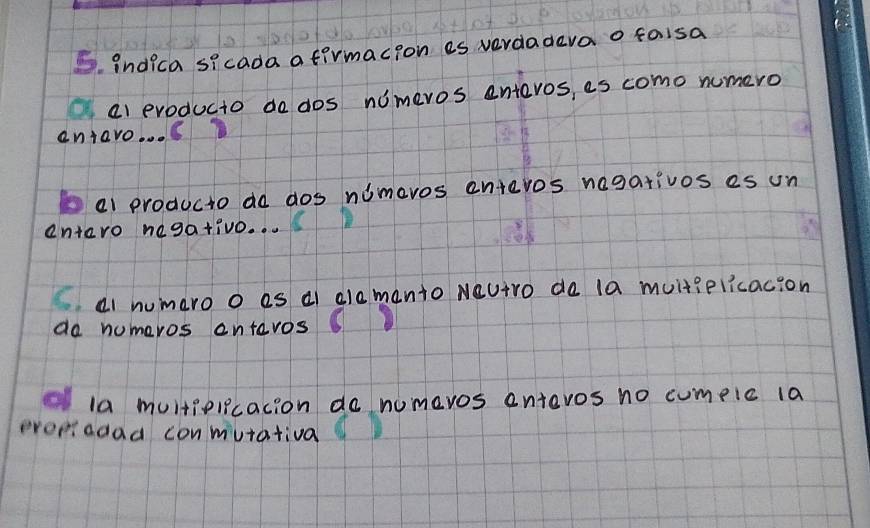 5. indica si cada afirmacion es verdadera o falsa
a el producto de dos números enteros, es como numero
entero...( )
b el producto de dos números enteros negativos es un
entero negativo...( )
C. el numero 0 es el elemento Neutro de la multiplicacion
de numeros enteros ( )
d la multiplicacion de numeros enteros no cumple la
propiedad conmutativa ( )